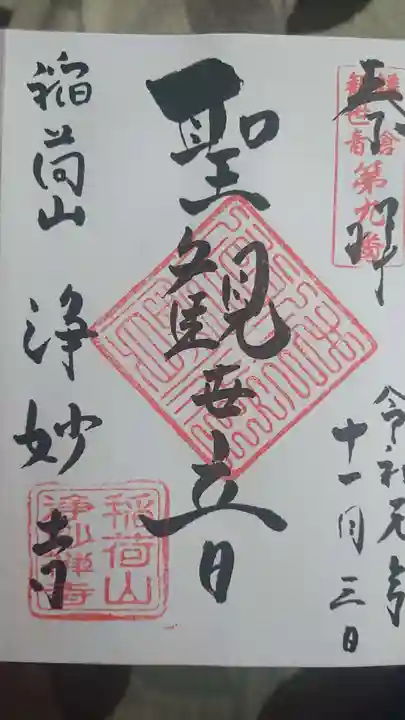 奉拝
鎌倉
観世音第九番
令和元年
十一月三日
聖観世音
稲荷山 浄妙寺
稲荷山
浄妙禅寺